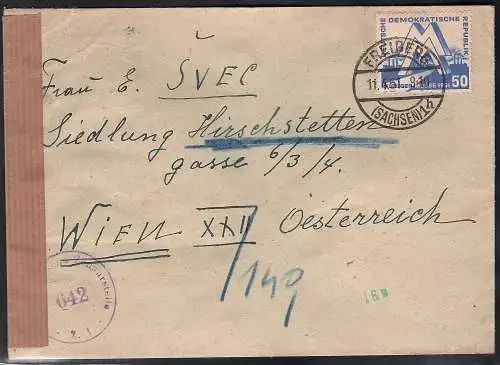 DEMOKRATISCHE
REPUBLIK
50
FREIBERG
11.4.51
(SACHSEN)1h
Frau E. ŠVEC
Siedlung Hirschstetten
gasse 6/3/4.
WIEN XXII Oesterreich
/149
642
16